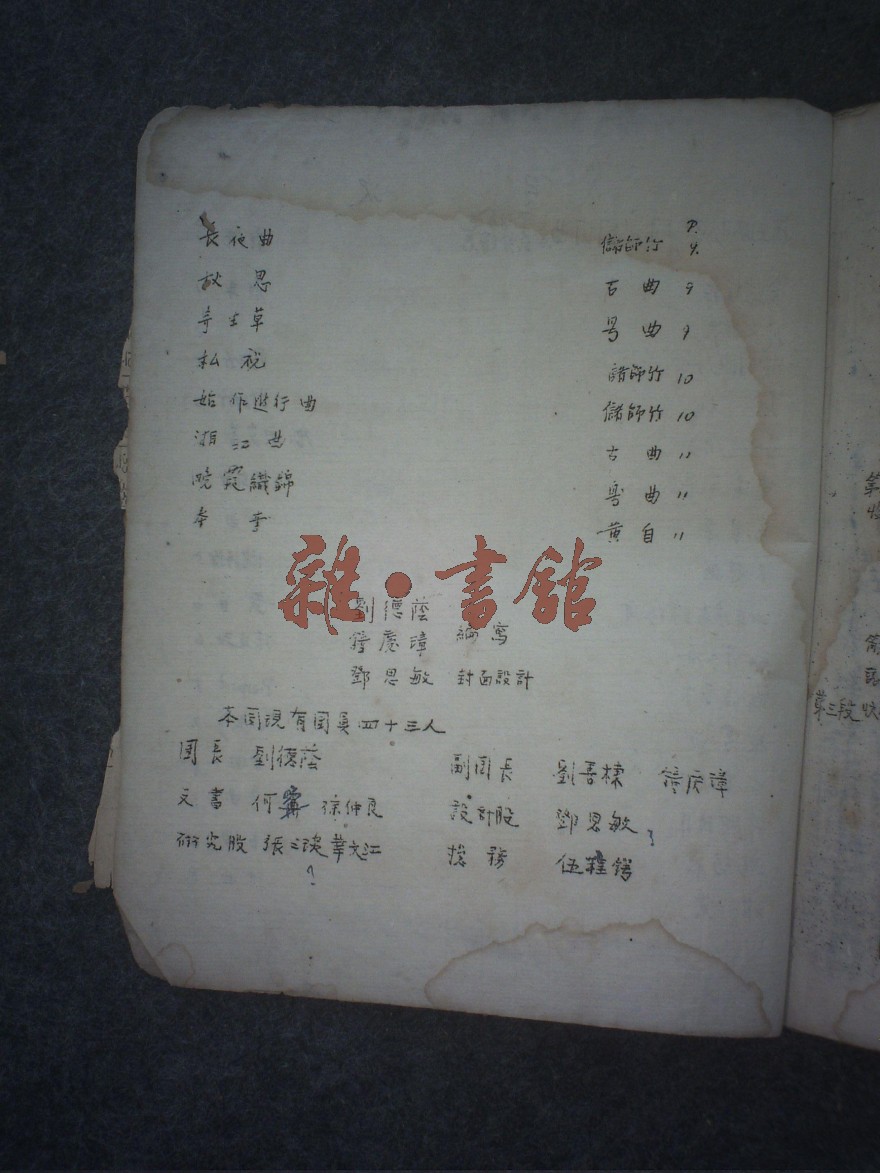 P.
長夜曲 儲師竹 9.
秋思 古曲 9
寄生草 粵曲 9
私祝 儲師竹 10
始作進行曲 儲師竹 10
湘江曲 古曲 〃
晚霞織錦 粵曲 〃
本事 黃自 〃
雜•書館
劉德蔭
慶璋 編寫
鄧思敏 封面設計
本團現有團員四十三人
團長 劉德蔭 副團長 劉吾棣 慶璋
文書 何 徐仲良 設計股 鄧思敏
研究股 張 華文江 總務 伍
第三段